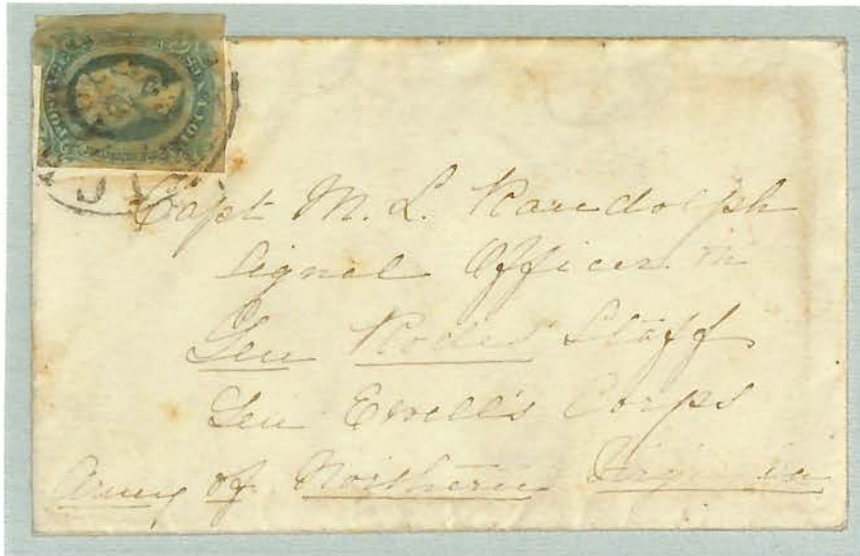 Capt M. L. Randolph
Signal Officer in
Gen Rodes' Staff
Gen Ewell's Corps
Army of Northern Virginia